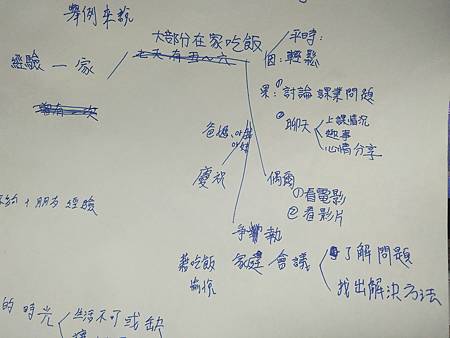 舉例來說
大部分在家吃飯
平時:
因:輕鬆
經驗 一 家
七天有五~六
果:①討論課業問題
②聊天
上課情況
趣事
心情分享
爸媽、
慶祝
偶爾
①看電影
②看影片
朋友經驗
爭執
吃飯
家庭會議
了解問題
找出解決方法
的時光
生活不可或缺